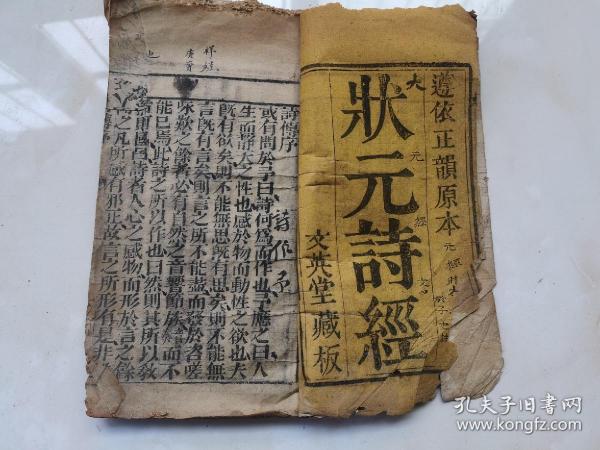 遵依正韻原本
狀元詩經
文英堂藏板
詩傳序
或有問於予曰詩何爲而作也予應之曰人
生而靜天之性也感於物而動性之欲也夫
既有欲矣則不能無思既有思矣則不能無
言既有言矣則言之所不能盡而發於咨嗟
咏歎之餘者必有自然之音響節族而不
能已焉此詩之所以作也曰然則其所以敎
者何也曰詩者人心之感物而形於言之餘
也心之所感有邪正故言之所形有是非
孔夫子旧书网
www.kongfz.com